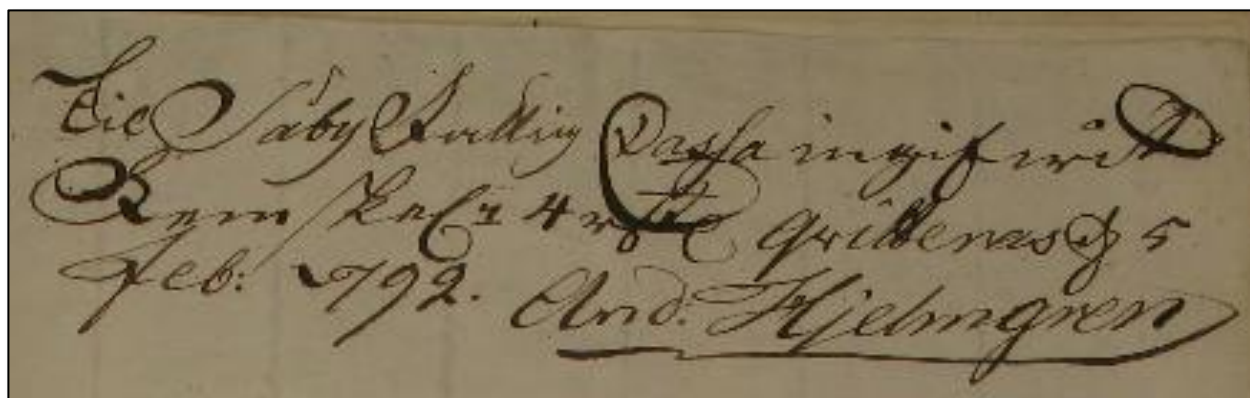 Til Säby Fattig Cassa ingifwit
Fem 4 Gribbenäs d 5
Feb: 1792. And. Hjelmgren